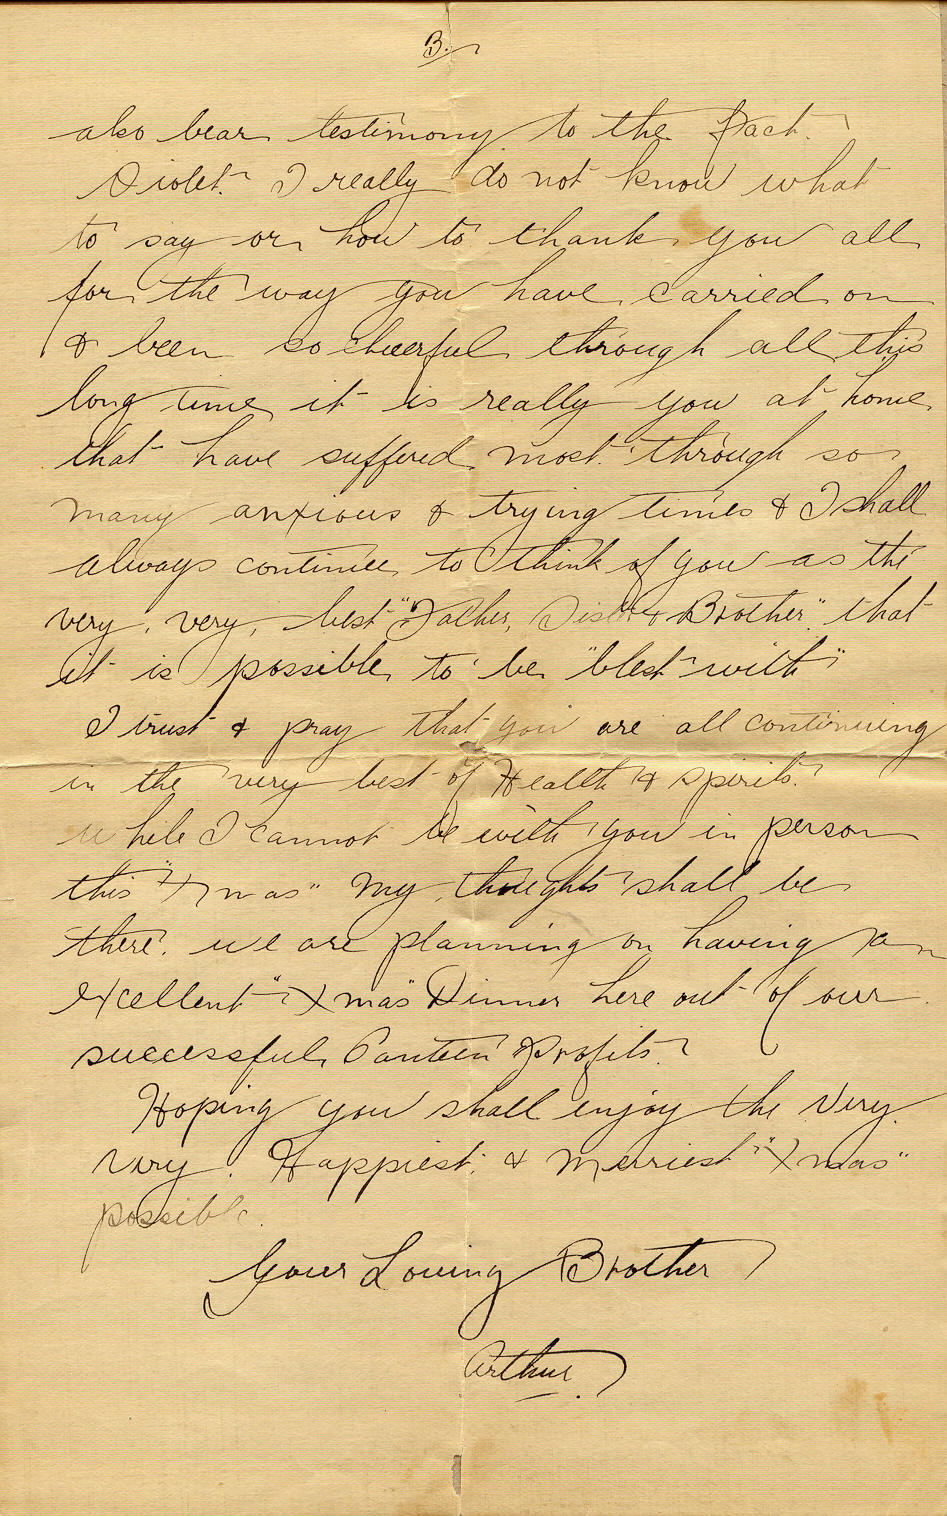 3.
also bear testimony to the Fact.
Violet. I really do not know what
to say or how to thank you all
for the way you have carried on
& been so cheerful through all this
long time it is really you at home
that have suffered most through so
many anxious & trying times & I shall
always continue to think of you as the
very, very, best "Father, Sister & Brother" that
it is possible to be "blest with"
I trust & pray that you are all continuing
in the very best of Health & spirits.
While I cannot be with you in person
this "Xmas" my thoughts shall be
there. we are planning on having an
excellent "Xmas" Dinner here out of our
successful Canteen Profits.
Hoping you shall enjoy the Very
Very. Happiest, & Merriest "Xmas"
possible.
Your Loving Brother
Arthur.